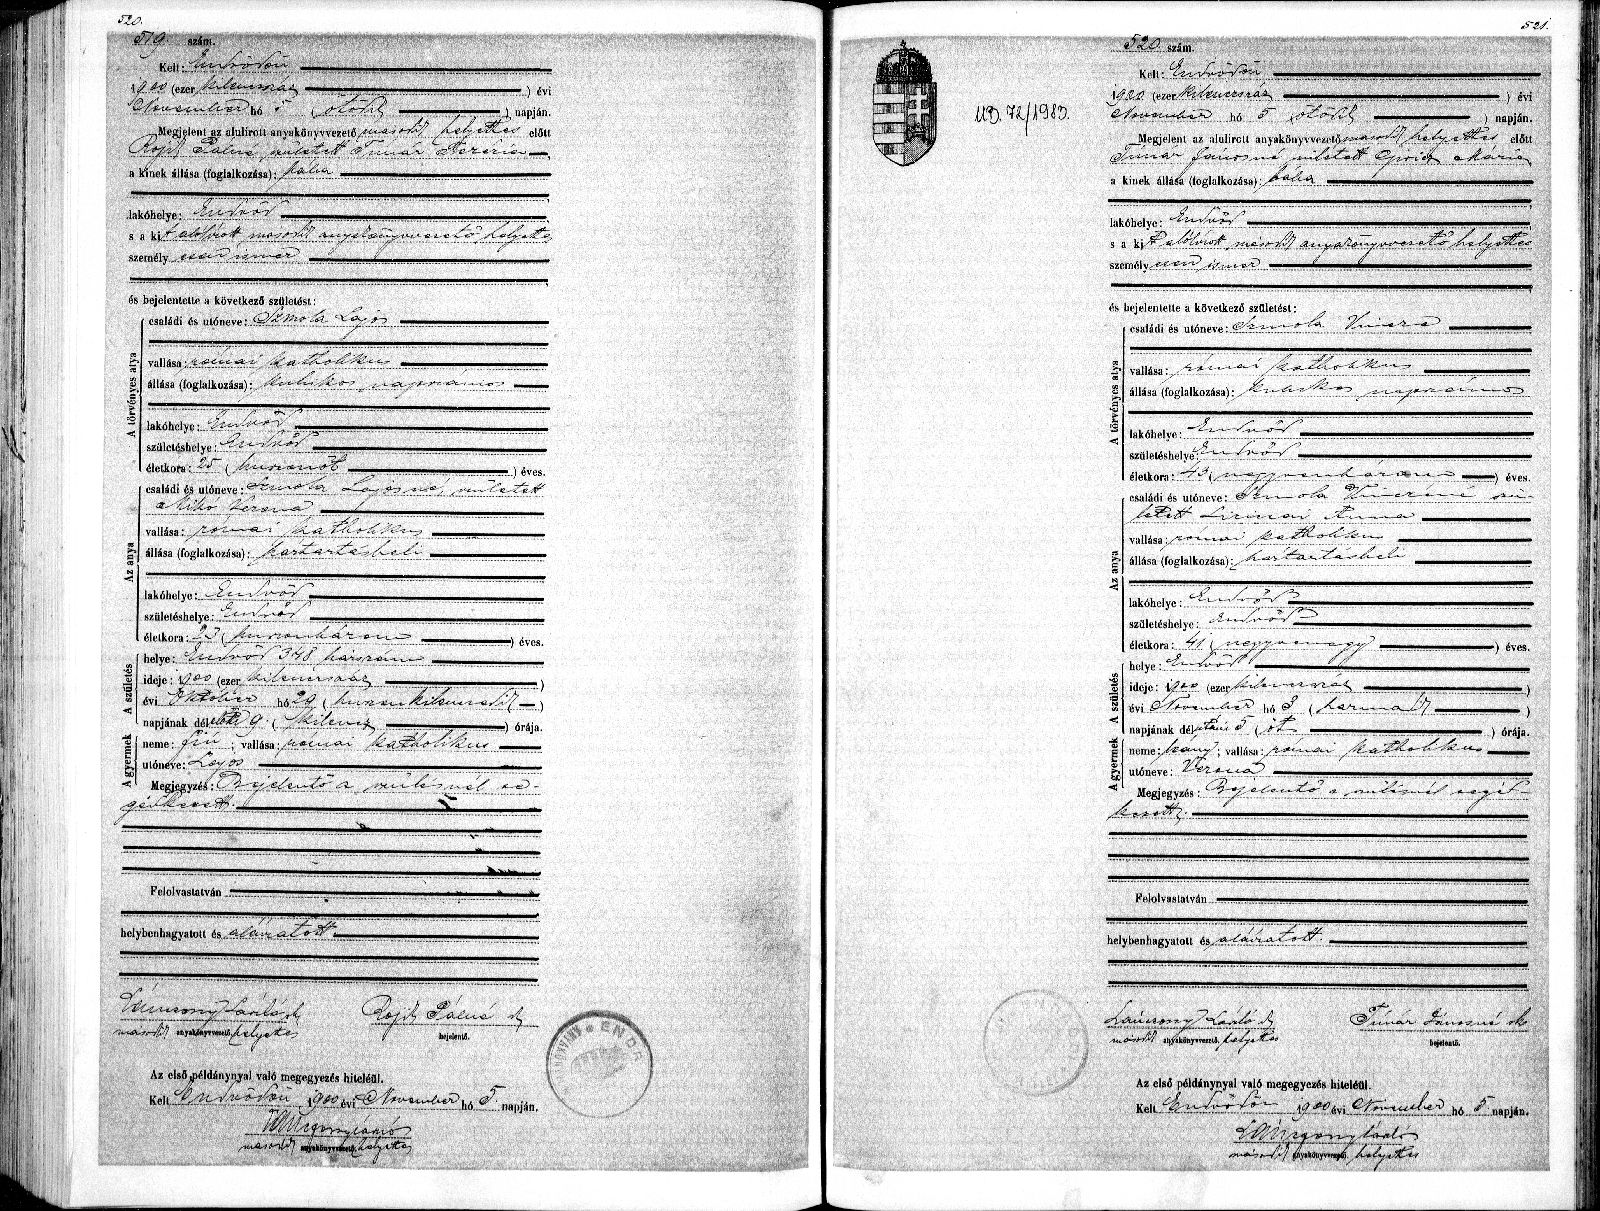 520.
519. szám.
Kelt: Endrődön
1900 (ezer kilenczszáz) évi
November hó 5 (ötödik) napján.
Megjelent az alulirott anyakönyvvezető második helyettes előtt
Pálné, született Tímár
a kinek állása (foglalkozása): bába
lakóhelye: Endrőd
s a kit alólírott második anyakönyvvezető helyettes
személyesen ismer
és bejelentette a következő születést:
A törvényes atya
családi és utóneve: Szmola Lajos
vallása: római katholikus
állása (foglalkozása): kubikos napszámos
lakóhelye: Endrőd
születéshelye: Endrőd
életkora: 25 (huszonöt) éves.
Az anya
családi és utóneve: Szmola Lajosné, született
Mihó Verona
vallása: római katholikus
állása (foglalkozása): háztartásbeli
lakóhelye: Endrőd
születéshelye: Endrőd
életkora: 23 (huszonhárom) éves.
A születés
helye: Endrőd 348 házszám
ideje: 1900 (ezer kilenczszáz)
évi Október hó 29 (huszonkilenczedik)
napjának délelőtti 9 (kilencz) órája.
A gyermek
neme: fiú; vallása: római katholikus
utóneve: Lajos
Megjegyzés: Bejelentő a szülésnél se-
gédkezett.
Felolvastatván
helybenhagyatott és aláíratott.
László sk
második anyakönyvvezető helyettes
Pálné sk
bejelentő.
Az első példánynyal való megegyezés hiteléül.
Kelt Endrődön 1900 évi November hó 5 napján.
második anyakönyvvezető helyettes
521.
UD. 72/1983.
520. szám.
Kelt: Endrődön
1900 (ezer kilenczszáz) évi
November hó 5 (ötödik) napján.
Megjelent az alulirott anyakönyvvezető második helyettes előtt
Tímár Jánosné született Mária
a kinek állása (foglalkozása): bába
lakóhelye: Endrőd
s a kit alólírott második anyakönyvvezető helyettes
személyesen ismer
és bejelentette a következő születést:
A törvényes atya
családi és utóneve: Szmola Vincze
vallása: római katholikus
állása (foglalkozása): kubikos napszámos
lakóhelye: Endrőd
születéshelye: Endrőd
életkora: 43 (negyvenhárom) éves.
Az anya
családi és utóneve: Szmola Vinczéné szü-
letett Anna
vallása: római katholikus
állása (foglalkozása): háztartásbeli
lakóhelye: Endrőd
születéshelye: Endrőd
életkora: 41 (negyvenegy) éves.
A születés
helye: Endrőd
ideje: 1900 (ezer kilenczszáz)
évi November hó 3 (harmadik)
napjának délutáni 5 (öt) órája.
A gyermek
neme: leány; vallása: római katholikus
utóneve: Verona
Megjegyzés: Bejelentő a szülésnél segéd-
kezett.
Felolvastatván
helybenhagyatott és aláíratott.
László sk
második anyakönyvvezető helyettes
Tímár Jánosné sk
bejelentő.
Az első példánynyal való megegyezés hiteléül.
Kelt Endrődön 1900 évi November hó 5 napján.
második anyakönyvvezető helyettes